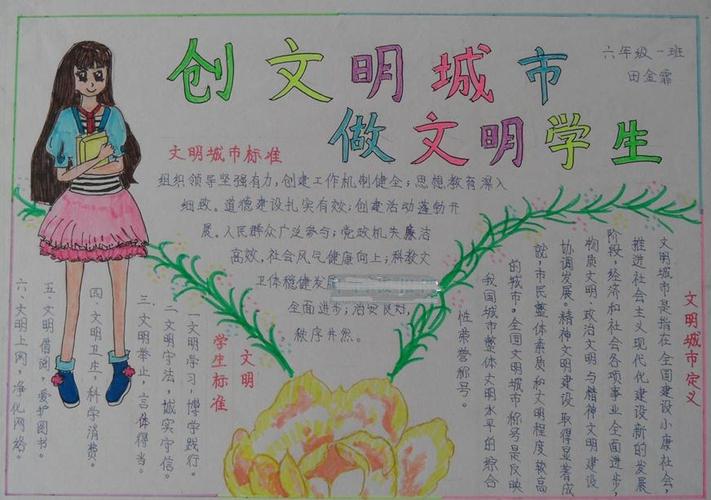 创文明城市
做文明学生
六年级一班
田金霏
文明城市标准
组织领导坚强有力,创建工作机制健全;思想教育深入
细致。道德建设扎实有效;创建活动蓬勃开
展、人民群众广泛参与;党政机关廉洁
高效,社会风气健康向上;科教文
卫体稳健发展
全面进步;治安良好,
秩序井然。
文明城市定义
文明城市是指在全国建设小康社会,
推进社会主义现代化建设新的发展
阶段,经济和社会各项事业全面进步,
物质文明、政治文明与精神文明建设
协调发展。精神文明建设取得显著成
就,市民整体素质和文明程度较高
的城市。全国文明城市称号是反映
我国城市整体文明水平的综合
性荣誉称号。
文明
学生标准
一文明学习,博学践行。
二文明守法,诚实守信。
三、文明举止,言体得当。
四、文明卫生,科学消费。
五、文明借阅,爱护图书。
六、文明上网,净化网络。